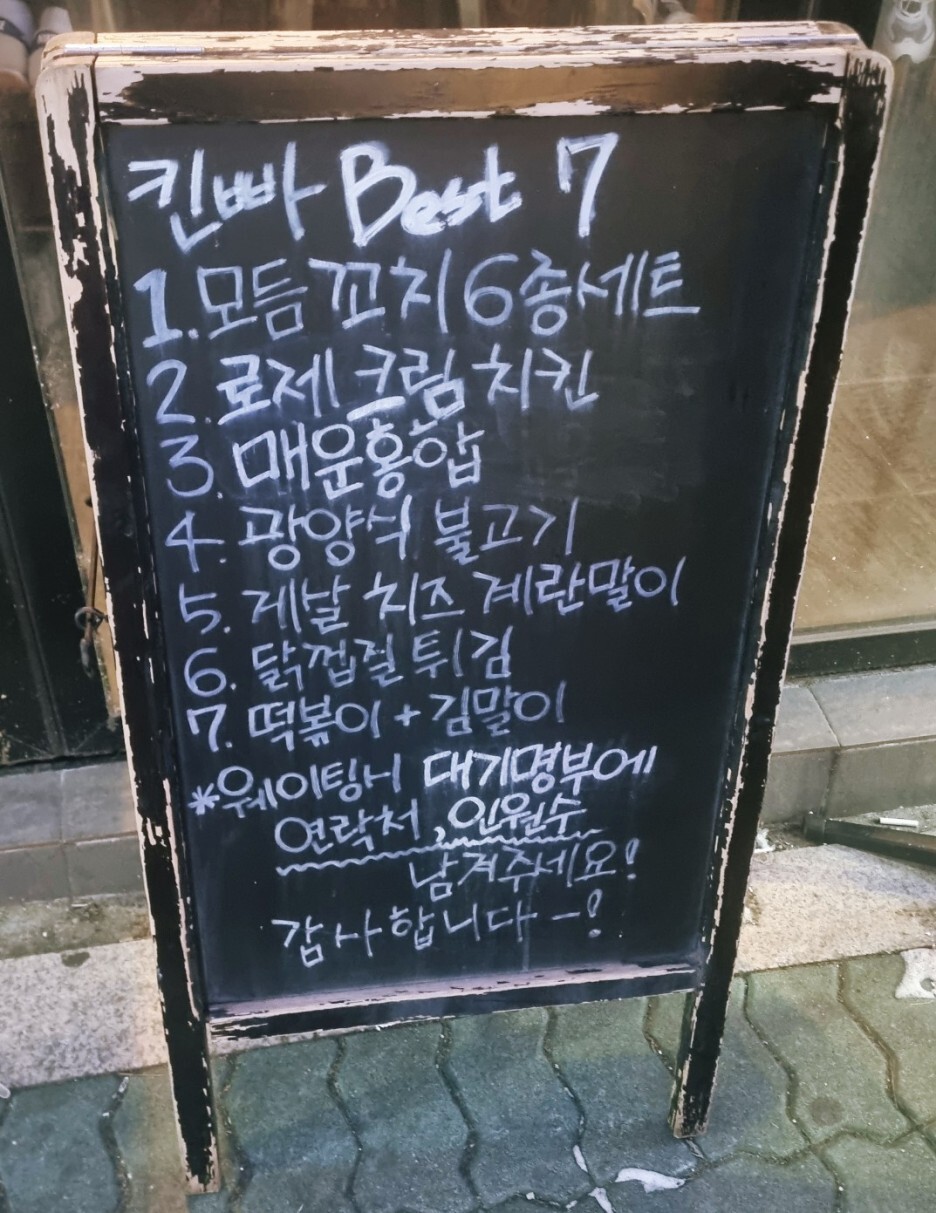 킨빠 Best 7
1. 모듬 꼬치 6종세트
2. 로제크림 치킨
3. 매운홍합
4. 광양식 불고기
5. 게날 치즈 계란말이
6. 닭껍질 튀김
7. 떡볶이 + 김말이
*웨이팅시 대기명부에
연락처, 인원수
남겨주세요!
감사합니다-!